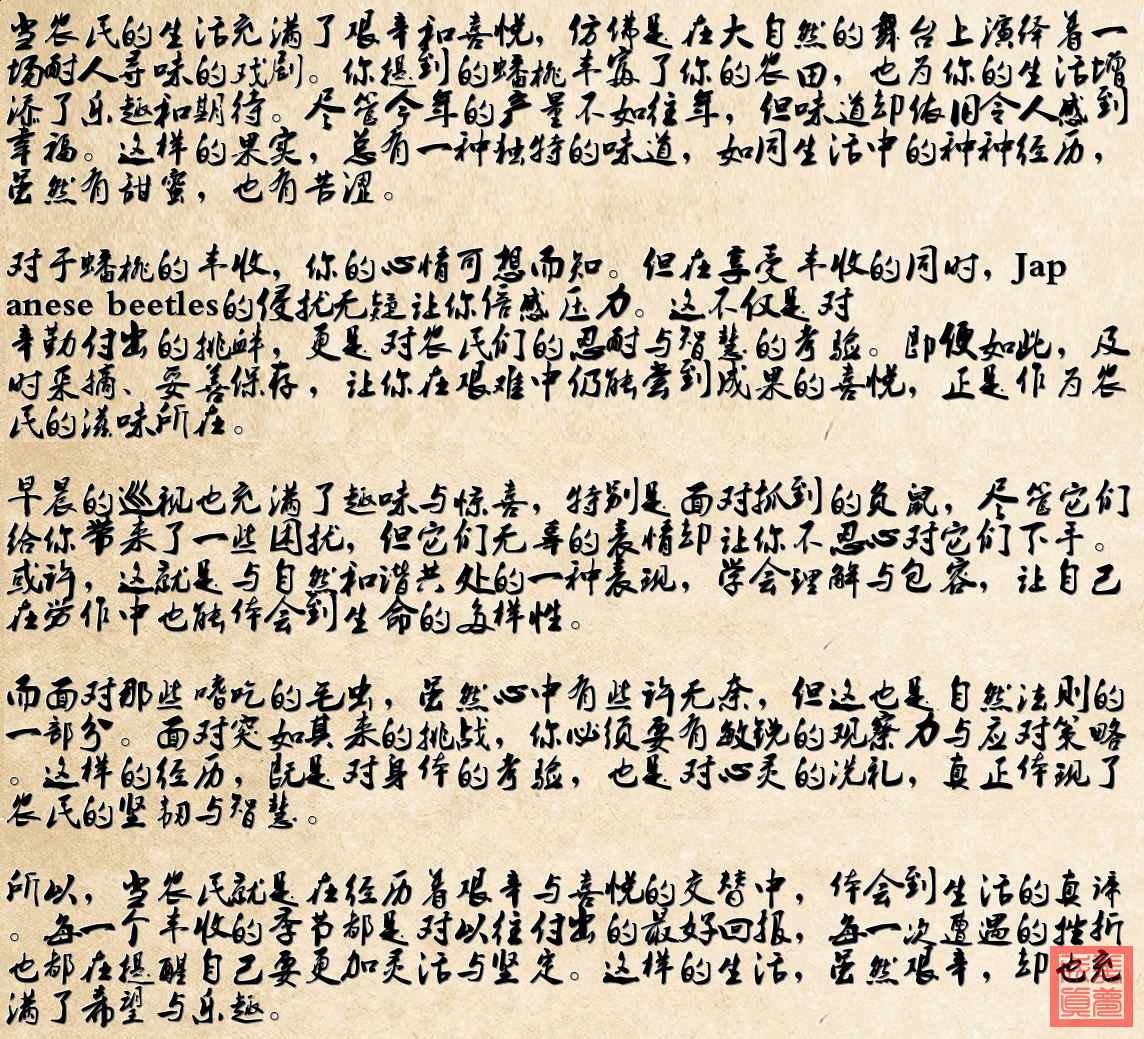 当农民的生活充满了艰辛和喜悦，仿佛是在大自然的舞台上演绎着一
场耐人寻味的戏剧。你提到的蟠桃丰富了你的农田，也为你的生活增
添了乐趣和期待。尽管今年的产量不如往年，但味道却依旧令人感到
幸福。这样的果实，总有一种独特的味道，如同生活中的种种经历，
虽然有甜蜜，也有苦涩。
对于蟠桃的丰收，你的心情可想而知。但在享受丰收的同时，Jap
anese beetles的侵扰无疑让你倍感压力。这不仅是对
辛勤付出的挑衅，更是对农民们的忍耐与智慧的考验。即便如此，及
时采摘、妥善保存，让你在艰难中仍能尝到成果的喜悦，正是作为农
民的滋味所在。
早晨的巡视也充满了趣味与惊喜，特别是面对抓到的负鼠，尽管它们
给你带来了一些困扰，但它们无辜的表情却让你不忍心对它们下手。
或许，这就是与自然和谐共处的一种表现，学会理解与包容，让自己
在劳作中也能体会到生命的多样性。
而面对那些嗜吃的毛虫，虽然心中有些许无奈，但这也是自然法则的
一部分。面对突如其来的挑战，你必须要有敏锐的观察力与应对策略
。这样的经历，既是对身体的考验，也是对心灵的洗礼，真正体现了
农民的坚韧与智慧。
所以，当农民就是在经历着艰辛与喜悦的交替中，体会到生活的真谛
。每一个丰收的季节都是对以往付出的最好回报，每一次遭遇的挫折
也都在提醒自己要更加灵活与坚定。这样的生活，虽然艰辛，却也充
满了希望与乐趣。